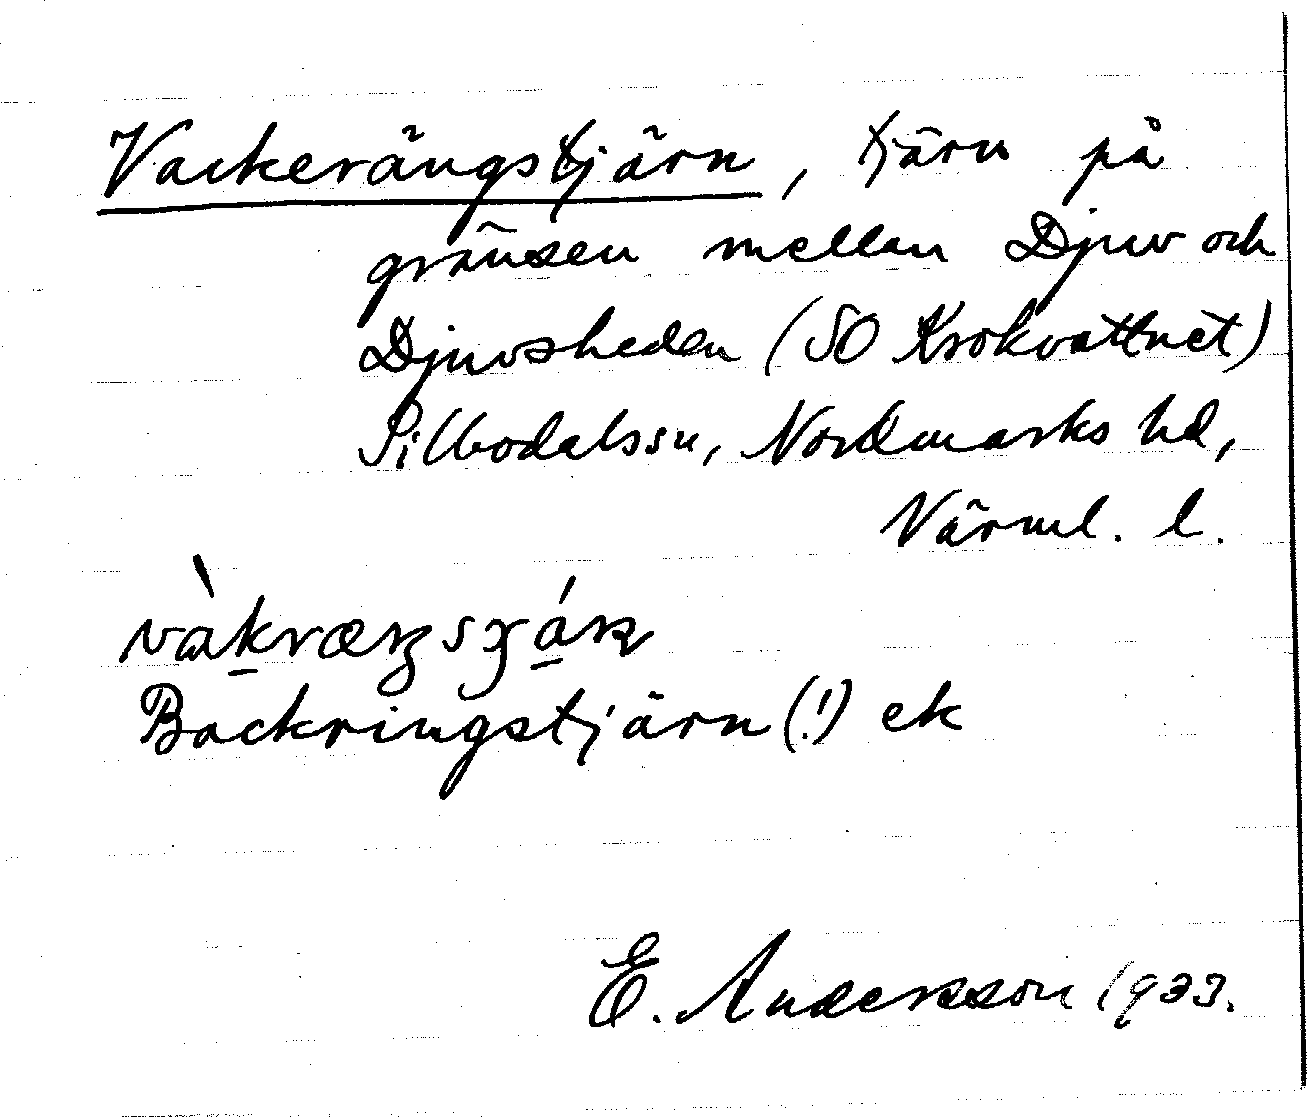 Vackerängstjärn, tjärn på
gränsen mellan Djuv och
Djuvsheden (SO Krokvattnet)
Silbodalssn, Nordmarks hd,
Värml. l.
Backringstjärn (!) ek
E. Andersson 1933.